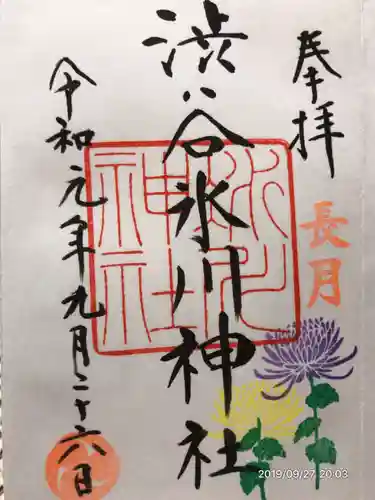 奉拝
長月
渋谷氷川神社
氷川
神社
令和元年九月二十六日
2019/09/27 20:03